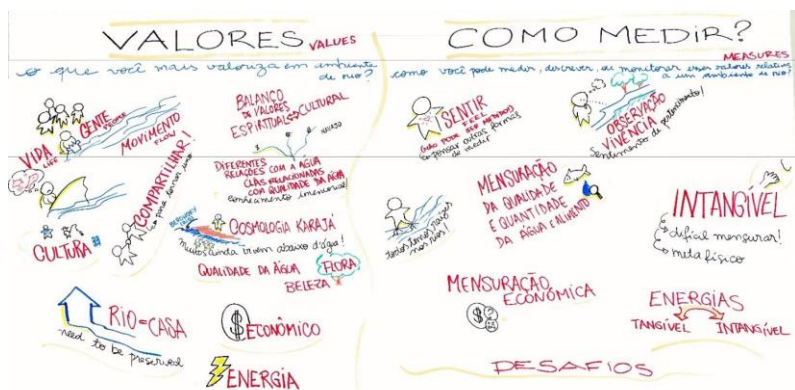 VALORES VALUES
o que você mais valoriza em ambiente
de rio?
VIDA
LIFE
GENTE
PEOPLE
MOVIMENTO
FLOW
COMPARTILHAR!
CULTURA
BALANÇO
DE VALORES
ESPIRITUAL CULTURAL
DIFERENTES
RELAÇÕES COM A ÁGUA
ELAS RELACIONADAS
COM QUALIDADE DA ÁGUA
conhecimento
COSMOLOGIA KARAJÁ
muitos ainda vivem abaixo d'água!
QUALIDADE DA ÁGUA
FLORA
BELEZA
RIO=CASA
need to be preserved
$ ECONÔMICO
ENERGIA
COMO MEDIR?
MEASURES
como você pode medir, descrever, ou monitorar esses valores relativos
a um ambiente de rio?
SENTIR
FEEL
(NÃO PODE SER MEDIDO)
pensar outras formas
de medir
OBSERVAÇÃO
VIVÊNCIA
sentimento de pertencimento!
todos temos raízes
nos rios!
MENSURAÇÃO
DA QUALIDADE
E QUANTIDADE
DA ÁGUA E ALIMENTO
INTANGÍVEL
difícil mensurar!
metafísico
MENSURAÇÃO
ECONÓMICA
$ ?
ENERGIAS
TANGÍVEL INTANGÍVEL
DESAFIOS